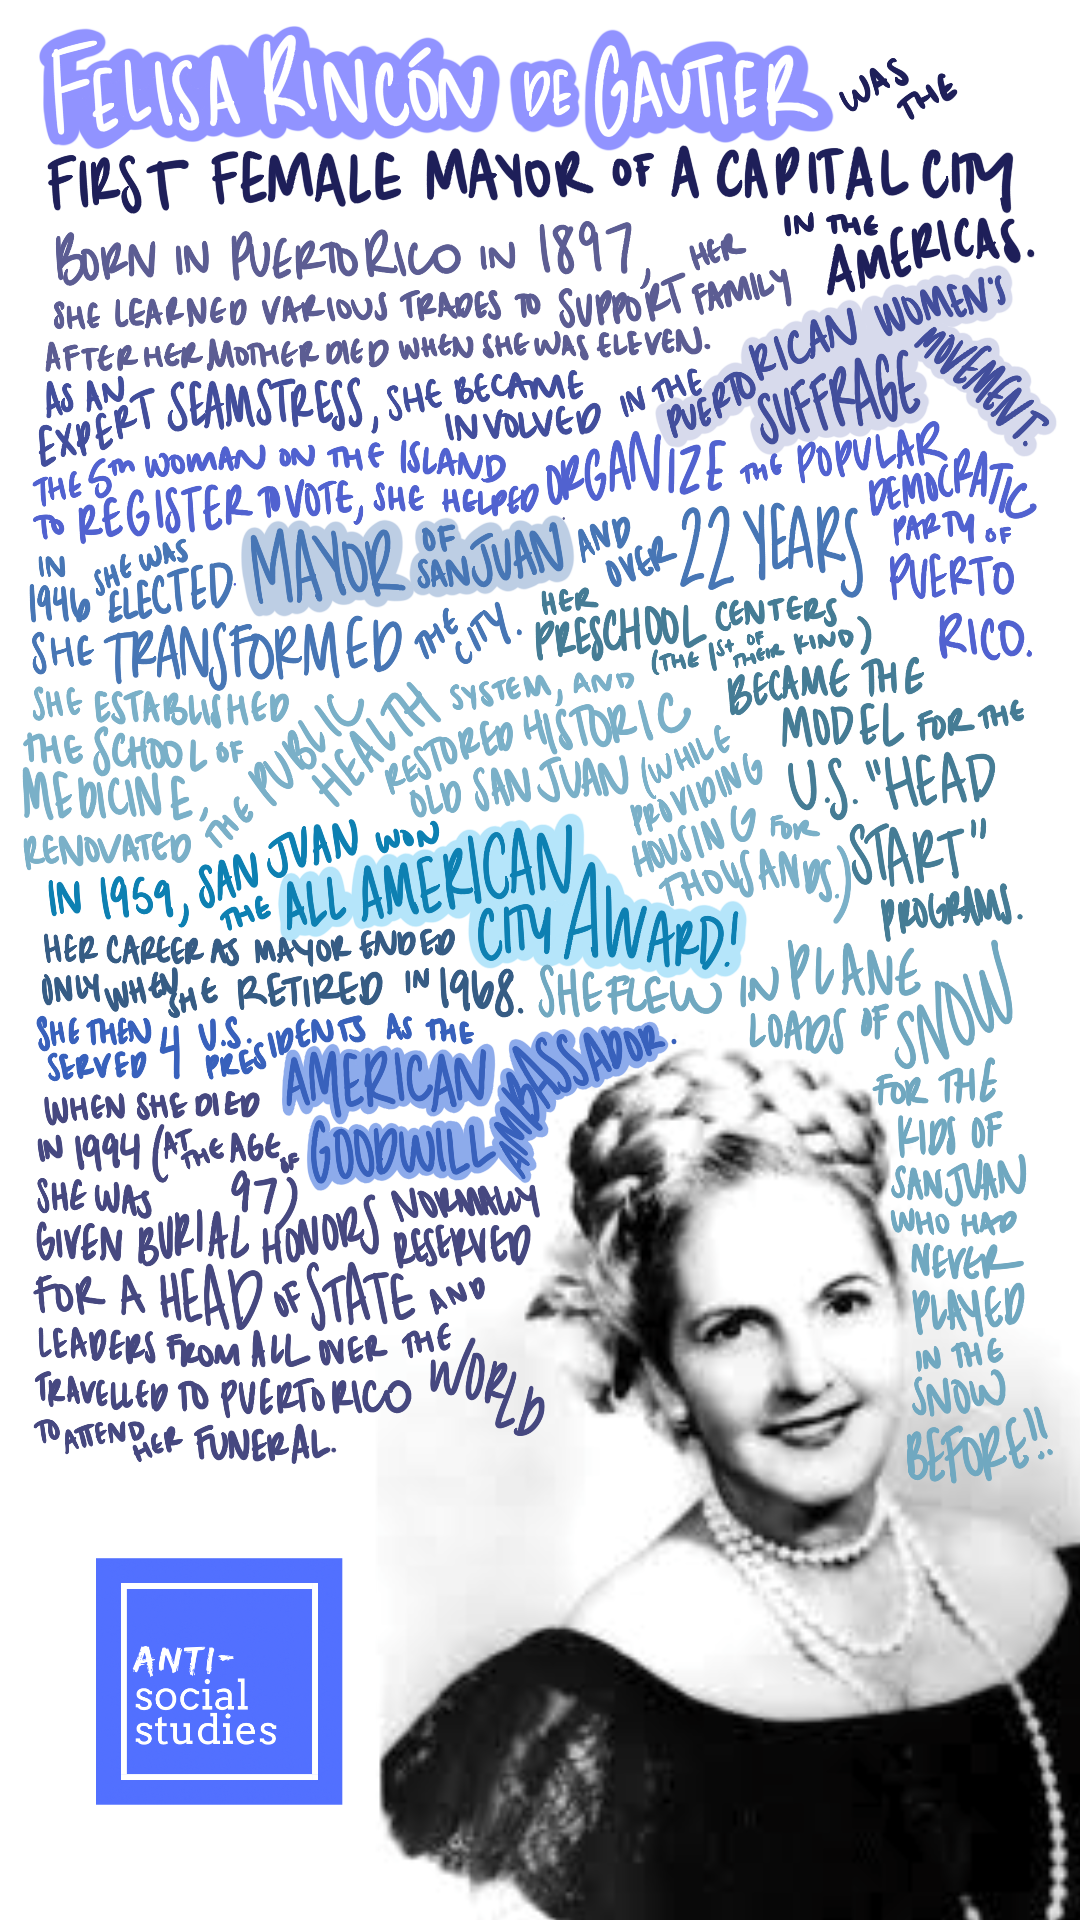 FELISA RINCÓN DE GAUTIER WAS THE
FIRST FEMALE MAYOR OF A CAPITAL CITY
IN THE
AMERICAS.
BORN IN PUERTO RICO IN 1897,
SHE LEARNED VARIOUS TRADES TO SUPPORT HER FAMILY
AFTER HER MOTHER DIED WHEN SHE WAS ELEVEN.
AS AN
EXPERT SEAMSTRESS, SHE BECAME
INVOLVED IN THE PUERTO RICAN WOMEN'S
SUFFRAGE MOVEMENT.
THE 5TH WOMAN ON THE ISLAND
TO REGISTER TO VOTE, SHE HELPED ORGANIZE THE POPULAR
DEMOCRATIC
PARTY OF
PUERTO
RICO.
IN
1946 SHE WAS
ELECTED MAYOR OF
SAN JUAN AND
OVER 22 YEARS
SHE TRANSFORMED THE
CITY. HER
PRESCHOOL CENTERS
(THE 1ST OF
THEIR KIND)
BECAME THE
MODEL FOR THE
U.S. "HEAD
START"
PROGRAMS.
SHE ESTABLISHED
THE SCHOOL OF
MEDICINE,
RENOVATED THE PUBLIC
HEALTH SYSTEM, AND
RESTORED HISTORIC
OLD SAN JUAN (WHILE
PROVIDING
HOUSING FOR
THOUSANDS.)
IN 1959, SAN JUAN WON
THE ALL AMERICAN
CITY AWARD!
HER CAREER AS MAYOR ENDED
ONLY WHEN SHE RETIRED IN 1968.
SHE FLEW IN PLANE
LOADS OF SNOW
FOR THE
KIDS OF
SAN JUAN
WHO HAD
NEVER
PLAYED
IN THE
SNOW
BEFORE!!
SHE THEN
SERVED 4 U.S.
PRESIDENTS AS THE
AMERICAN
GOODWILL AMBASSADOR.
WHEN SHE DIED
IN 1994 (AT THE AGE OF
97)
SHE WAS
GIVEN BURIAL HONORS NORMALLY
RESERVED
FOR A HEAD OF STATE AND
LEADERS FROM ALL OVER THE
WORLD
TRAVELLED TO PUERTO RICO
TO ATTEND HER FUNERAL.
ANTI-
social
studies